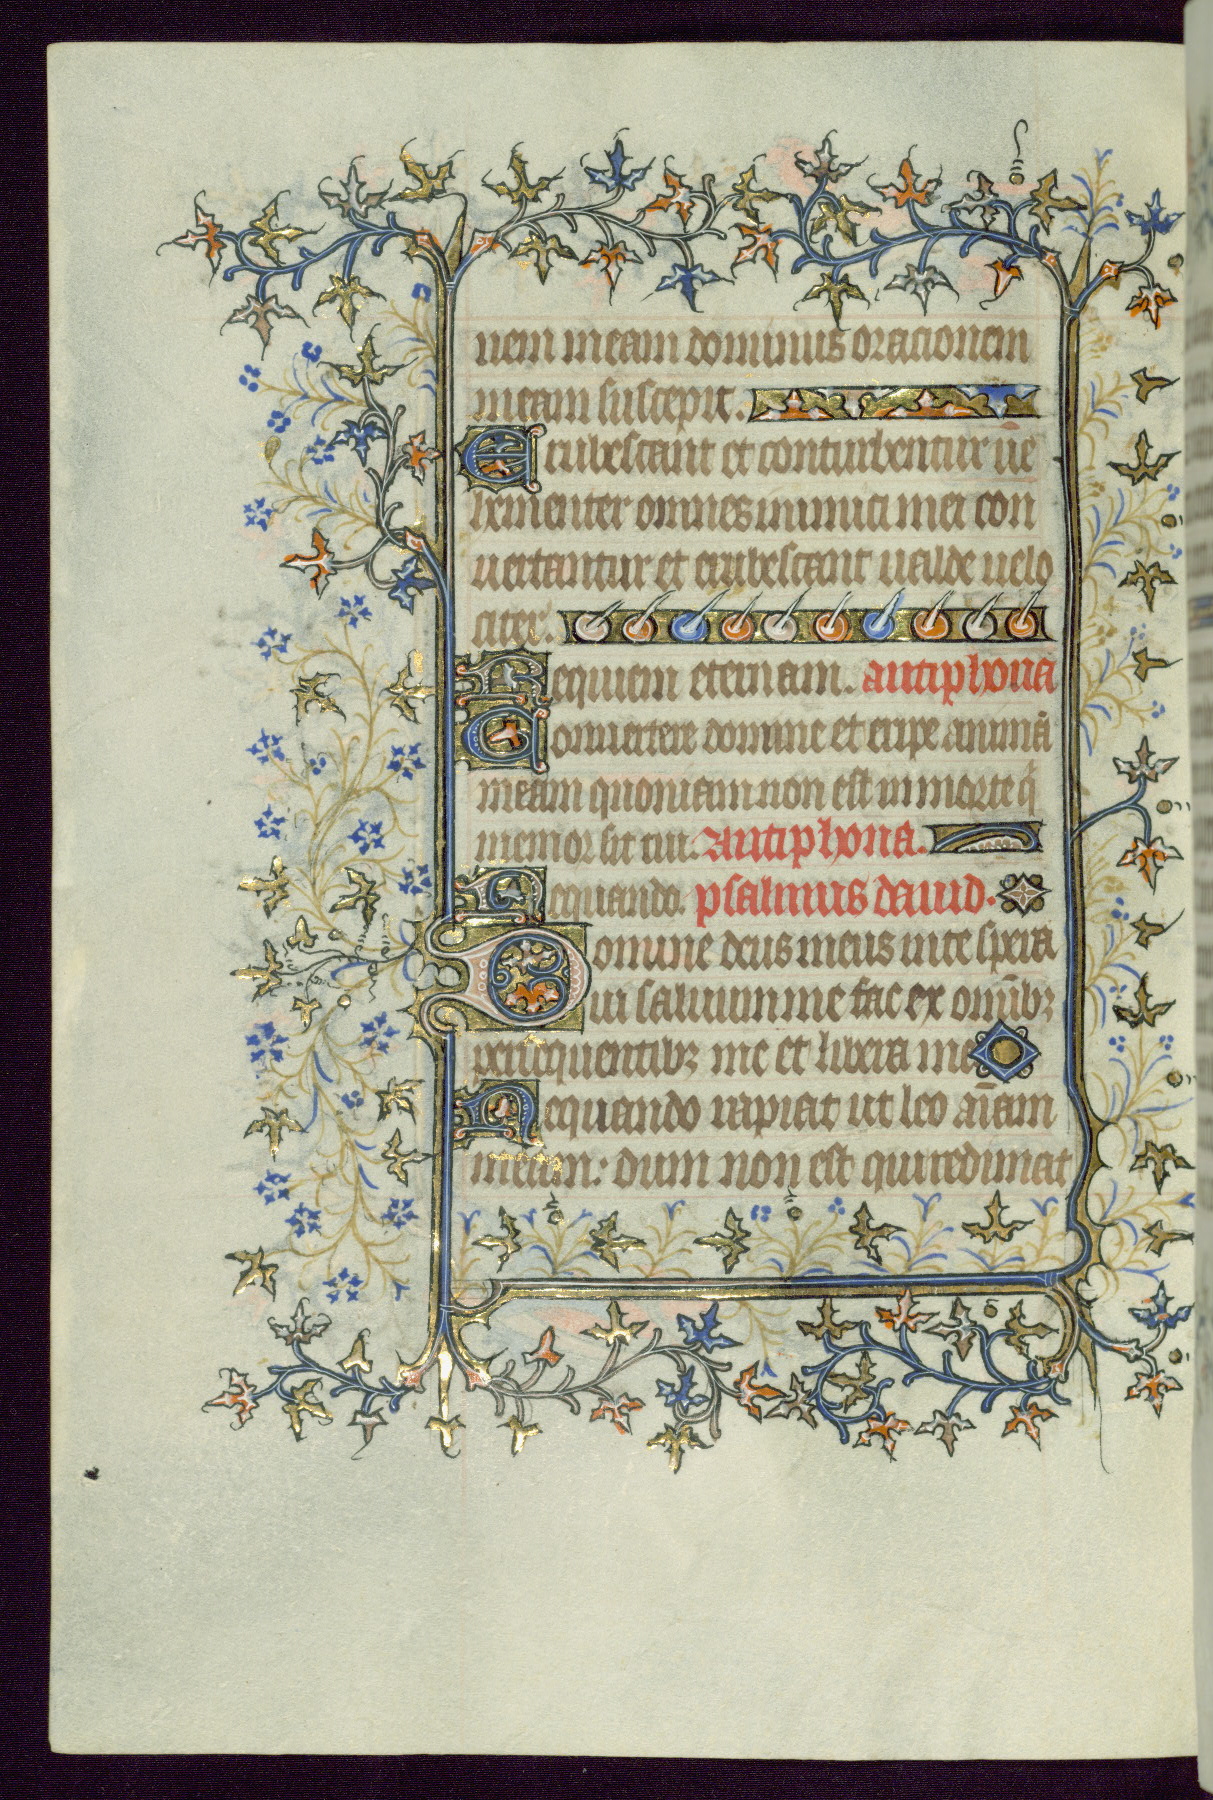 nem meam dominus orationem
meam suscepit.
Erubescant et conturbentur ūe
hementer omnes inimici mei con
uertantur et erubescant ualde uelo
citer.
Requiem eternam. antiphona
Conuertere domine et eripe animā
meam quoniam non est in morte q̄
memor sit tui. antiphona.
Nequando. psalmus dauid.
Domine deus meus in te spera
ui saluum me fac ex om̄ibꝫ
persequentibꝫ me et libera me
Nequando rapiat ut leo an̄am
meam: dum non est qui redimat